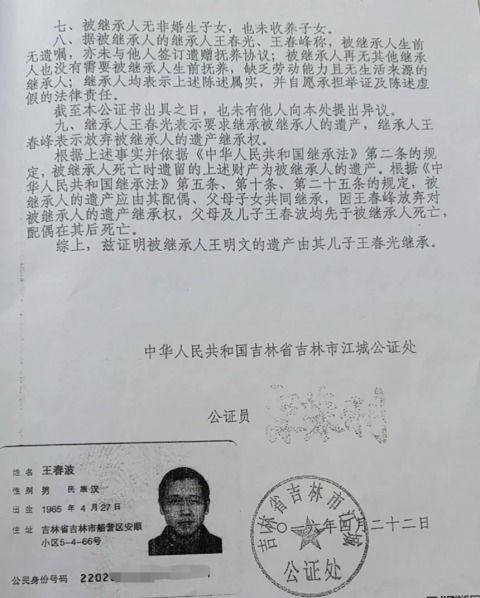 七、被继承人无非婚生子女，也未收养子女。
八、据被继承人的继承人王春光、王春峰称，被继承人生前
无遗嘱，亦未与他人签订遗赠抚养协议；被继承人再无其他继承
人也没有需要被继承人生前抚养，缺乏劳动能力且无生活来源的
继承人；继承人均表示上述陈述属实，并自愿承担举证及陈述虚
假的法律责任。
截至本公证书出具之日，也未有他人向本处提出异议。
九、继承人王春光表示要求继承被继承人的遗产，继承人王
春峰表示放弃被继承人的遗产继承权。
根据上述事实并依据《中华人民共和国继承法》第二条的规
定，被继承人死亡时遗留的上述财产为被继承人的遗产。根据《中
华人民共和国继承法》第五条、第十条、第二十五条的规定，被
继承人的遗产应由其配偶、父母子女共同继承，因王春峰放弃对
被继承人的遗产继承权，父母及儿子王春波均先于被继承人死亡，
配偶在其后死亡。
综上，兹证明被继承人王明文的遗产由其儿子王春光继承。
中华人民共和国吉林省吉林市江城公证处
公证员
姓名 王春波
性别 男 民族汉
出生 1965 年 4 月 27 日
住址 吉林省吉林市船营区安顺
小区5-4-66号
公民身份号码 2202
吉林省吉林市江城
六年四月二十二日
公证处